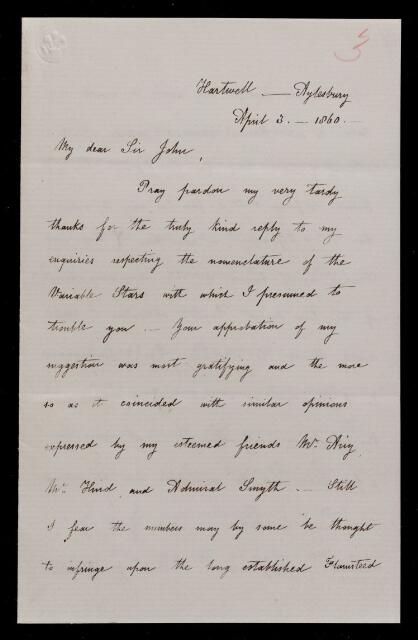 5
Hartwell — Aylesbury
April 3. — 1860. —
My dear Sir John,
Pray pardon my very tardy
thanks for the truly kind reply to my
enquiries respecting the nomenclature of the
Variable Stars with which I presumed to
trouble you. — Your approbation of my
suggestion was most gratifying and the more
so as it coincided with similar opinions
expressed by my esteemed friends Mr. Airy,
Mr. Hind, and Admiral Smyth. — Still
I fear the numbers may by some be thought
to infringe upon the long established Flamsteed